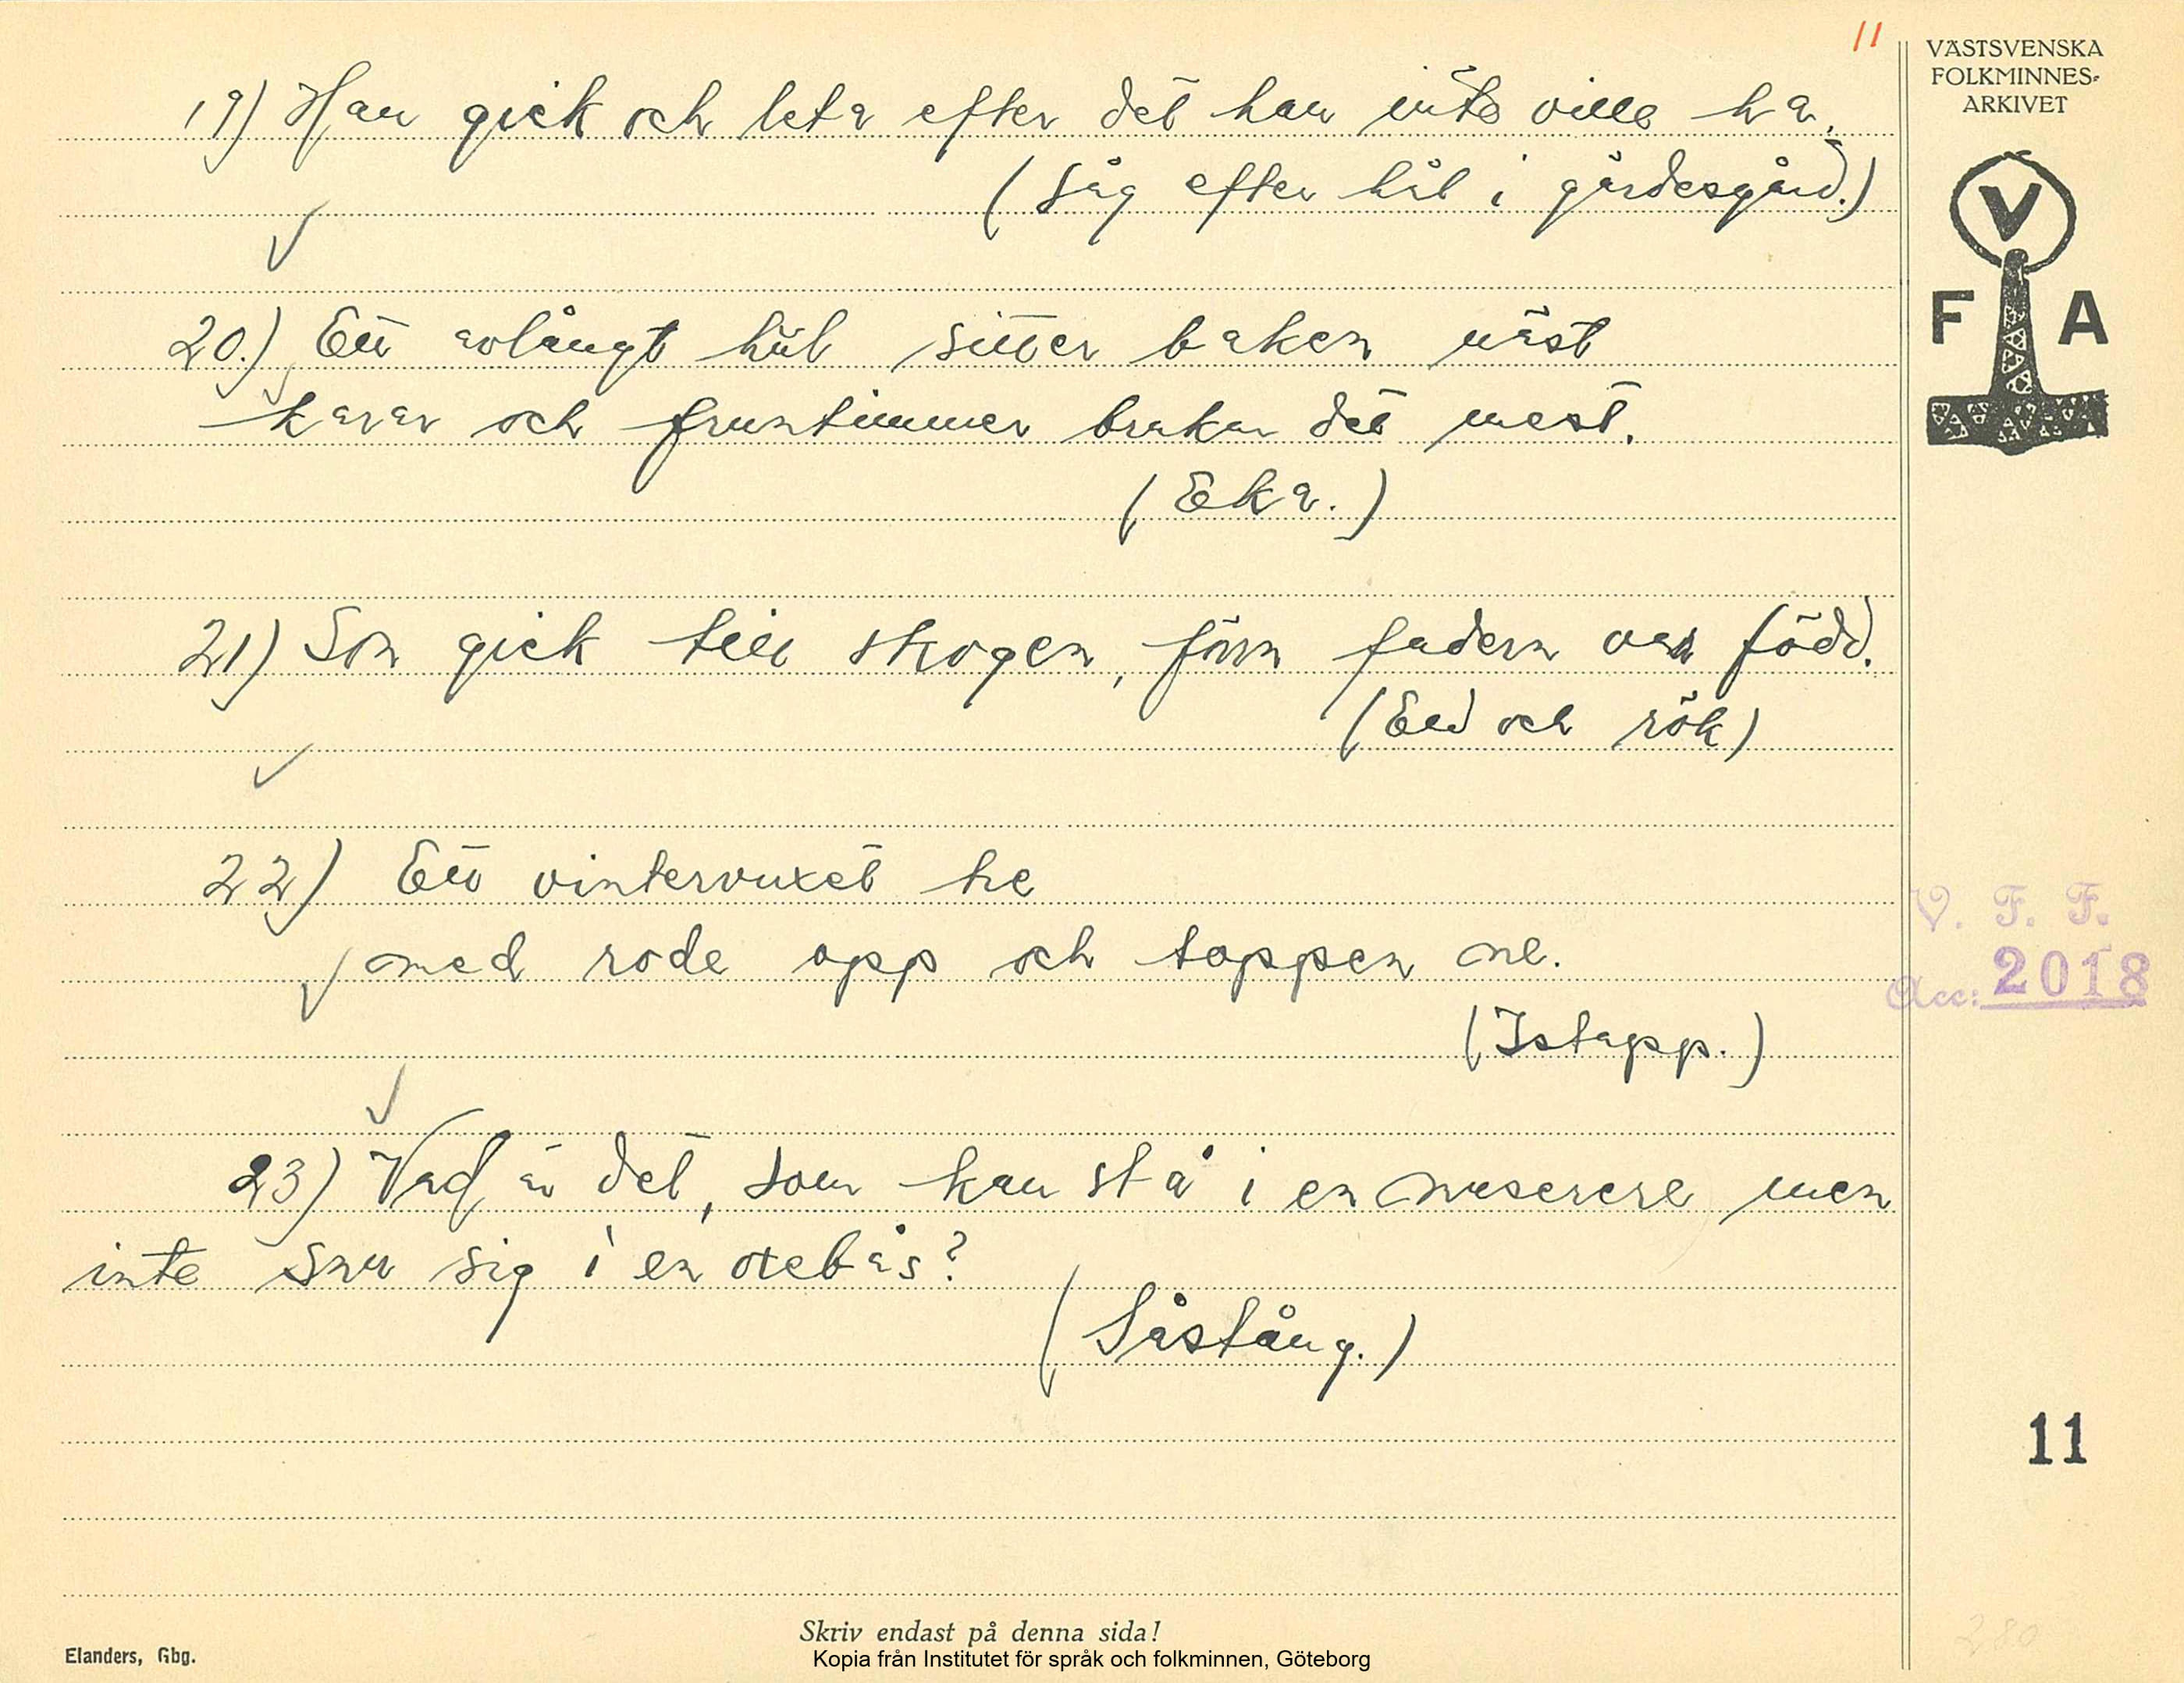 11
VÄSTSVENSKA
FOLKMINNES-
ARKIVET
V
F A
19) Han gick och leta efter det han inte ville ha.
(Såg efter hål i gärdesgård.)
20.) Ett avlångt hål sitter baken näst
karar och fruntimmer brukar det mest.
(Eka.)
21) Son gick till skogen, förrn fadern var född.
(Eld och rök)
22) Ett vintervuxet tre
med rode opp och toppen ne.
(Istapp.)
23) Vad är det, som kan stå i en muserere men
inte snu sig i en oxebås?
(Såstång.)
V. F. F.
Acc: 2018
11
280
Skriv endast på denna sida!
Elanders, Gbg.
Kopia från Institutet för språk och folkminnen, Göteborg